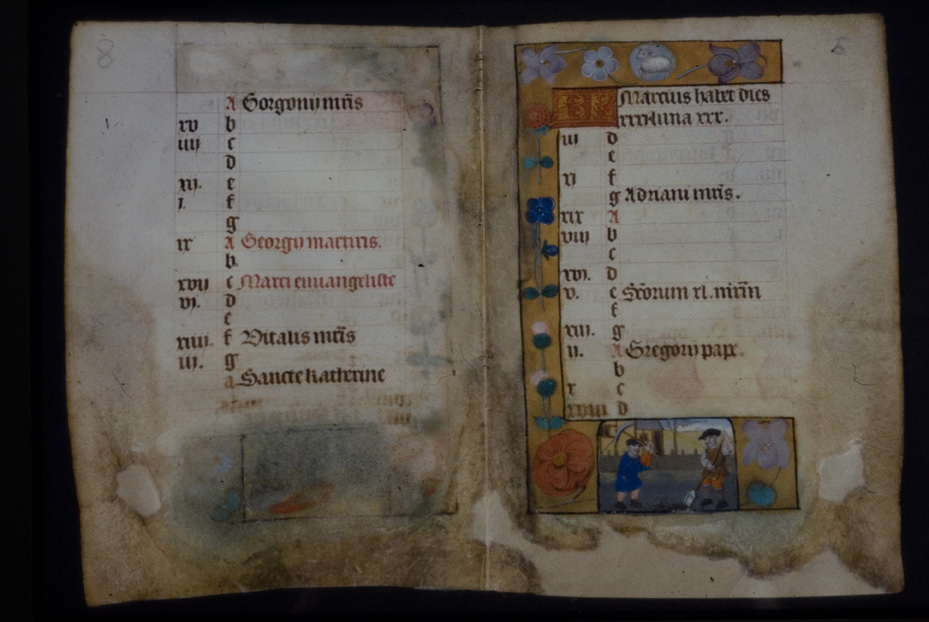 8
A Gorgonij mr̄is
xv b
iiij c
d
xij. e
i. f
g
ix A Georgij martiris.
b.
xvij c Marci euuangeliste
vi. d
e
xiiij. f Vitalis mr̄is
iij. g
a Sancte katherine
5
Marcius habet dies
xxxi luna xxx.
iij d
e
xi f
g Adriani mr̄is.
xix A
viij b
c
xvi. d
v. e Sc̄orum xl. mr̄m
f
xiii. g
ij. A Gregorij pape.
b
x c
xviij d